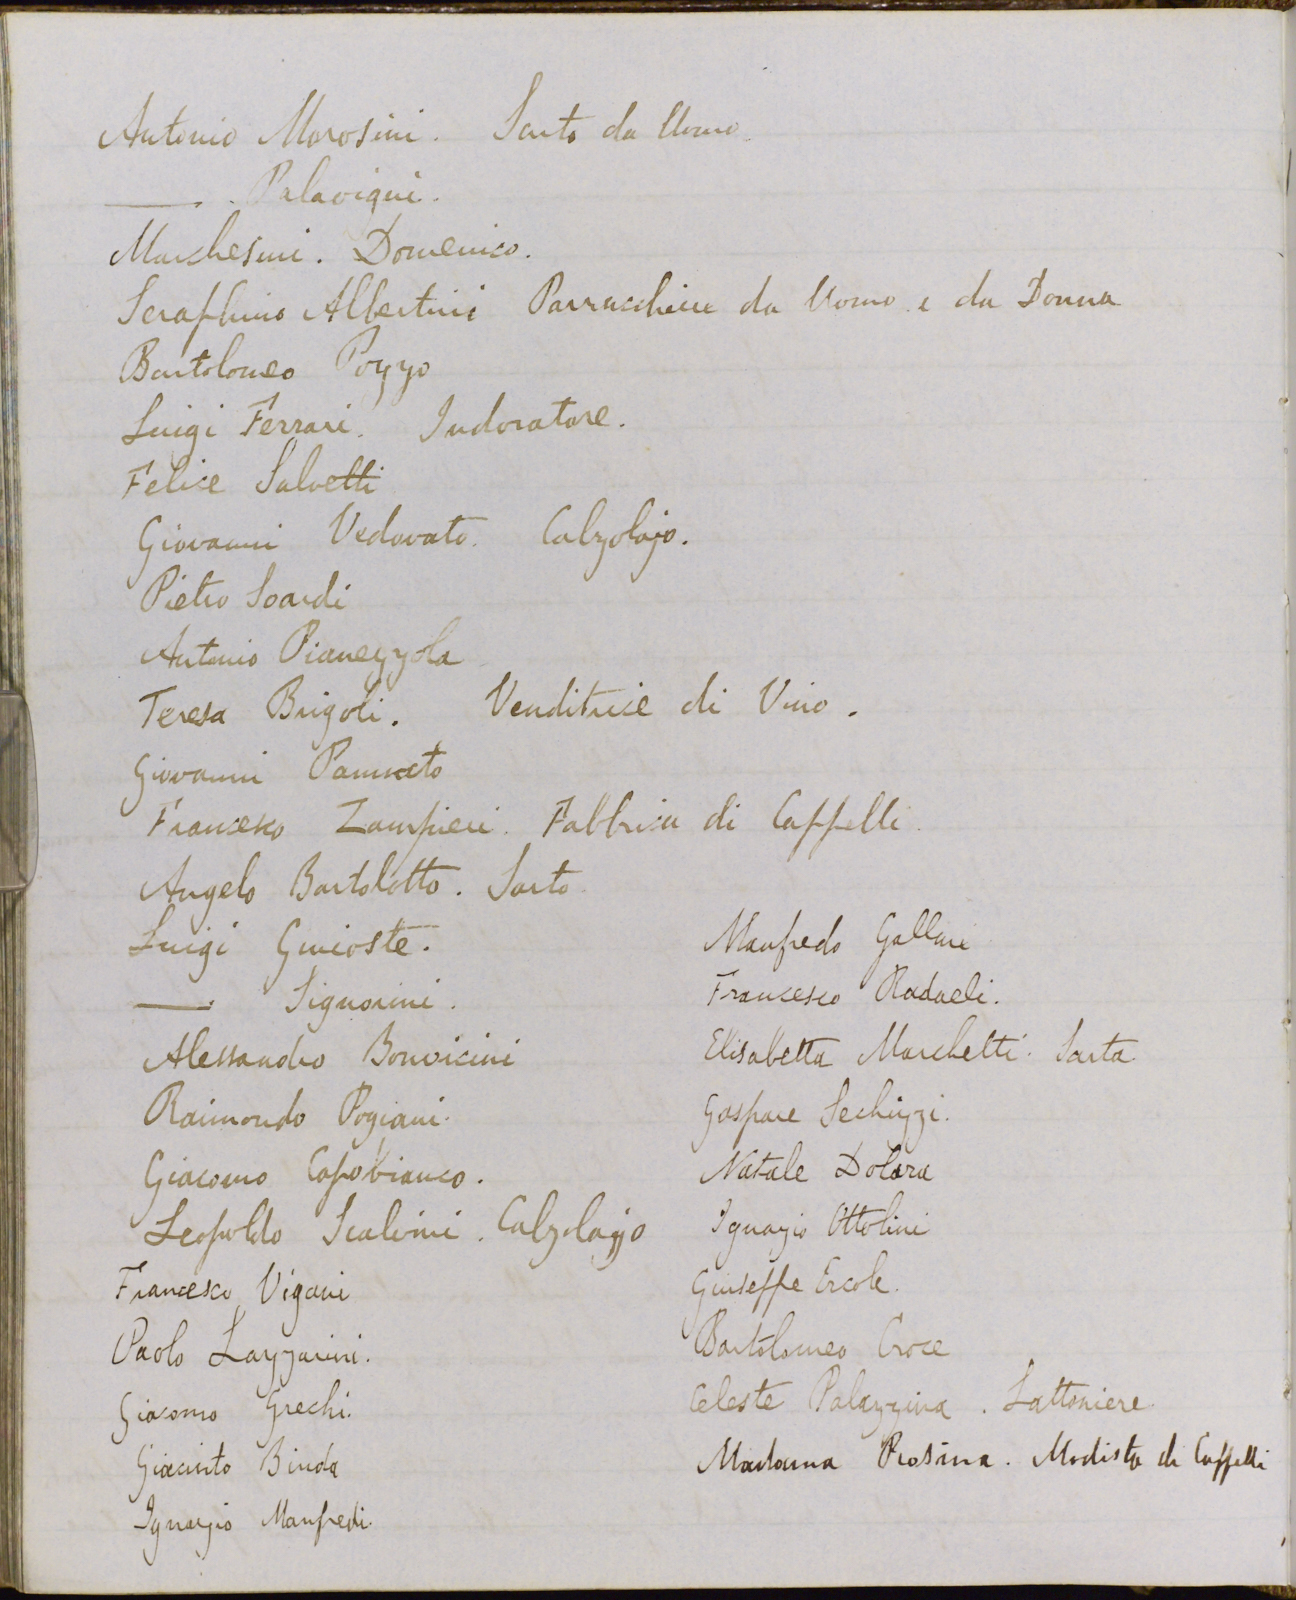 Antonio Morosini. Sarto da Uomo.
—— . Palavigni.
Marchesini. Domenico.
Seraphino Albertini Parrucchiere da Uomo e da Donna
Bartolomeo Pozzo
Luigi Ferrari. Indoratore.
Felice Salvetti
Giovanni Vedovato. Calzolajo.
Pietro Soardi
Antonio Pianezzola
Teresa Brigoli. Venditrice di Vino.
Giovanni
Francesco Zampieri. Fabbrica di Cappelli.
Angelo Bartolotto. Sarto.
Luigi
—— Signorini.
Alessandro Bonvicini
Raimondo Pogiani.
Giacomo Capobianco.
Leopoldo Scalvini. Calzolajo
Francesco Vigani
Paolo Lazzarini.
Giacomo Grechi.
Giacinto Binda
Ignazio Manfredi.
Manfredo Gallani
Francesco Radaeli.
Elisabetta Marchetti. Sarta
Gaspare Sechizzi.
Natale Dolara
Ignazio Ottolini
Giuseppe Ercole.
Bartolomeo Croce
Celeste Palazzina. Lattoniere.
Madama Rosina. Modista di Cappelli